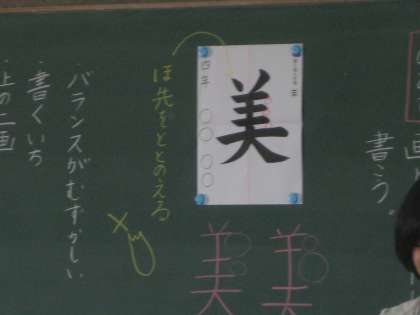 書こう。
美
四年 〇〇〇〇
ほ先をととのえる
・バランスがむずかしい
・書くいち
・上の二画
美
美